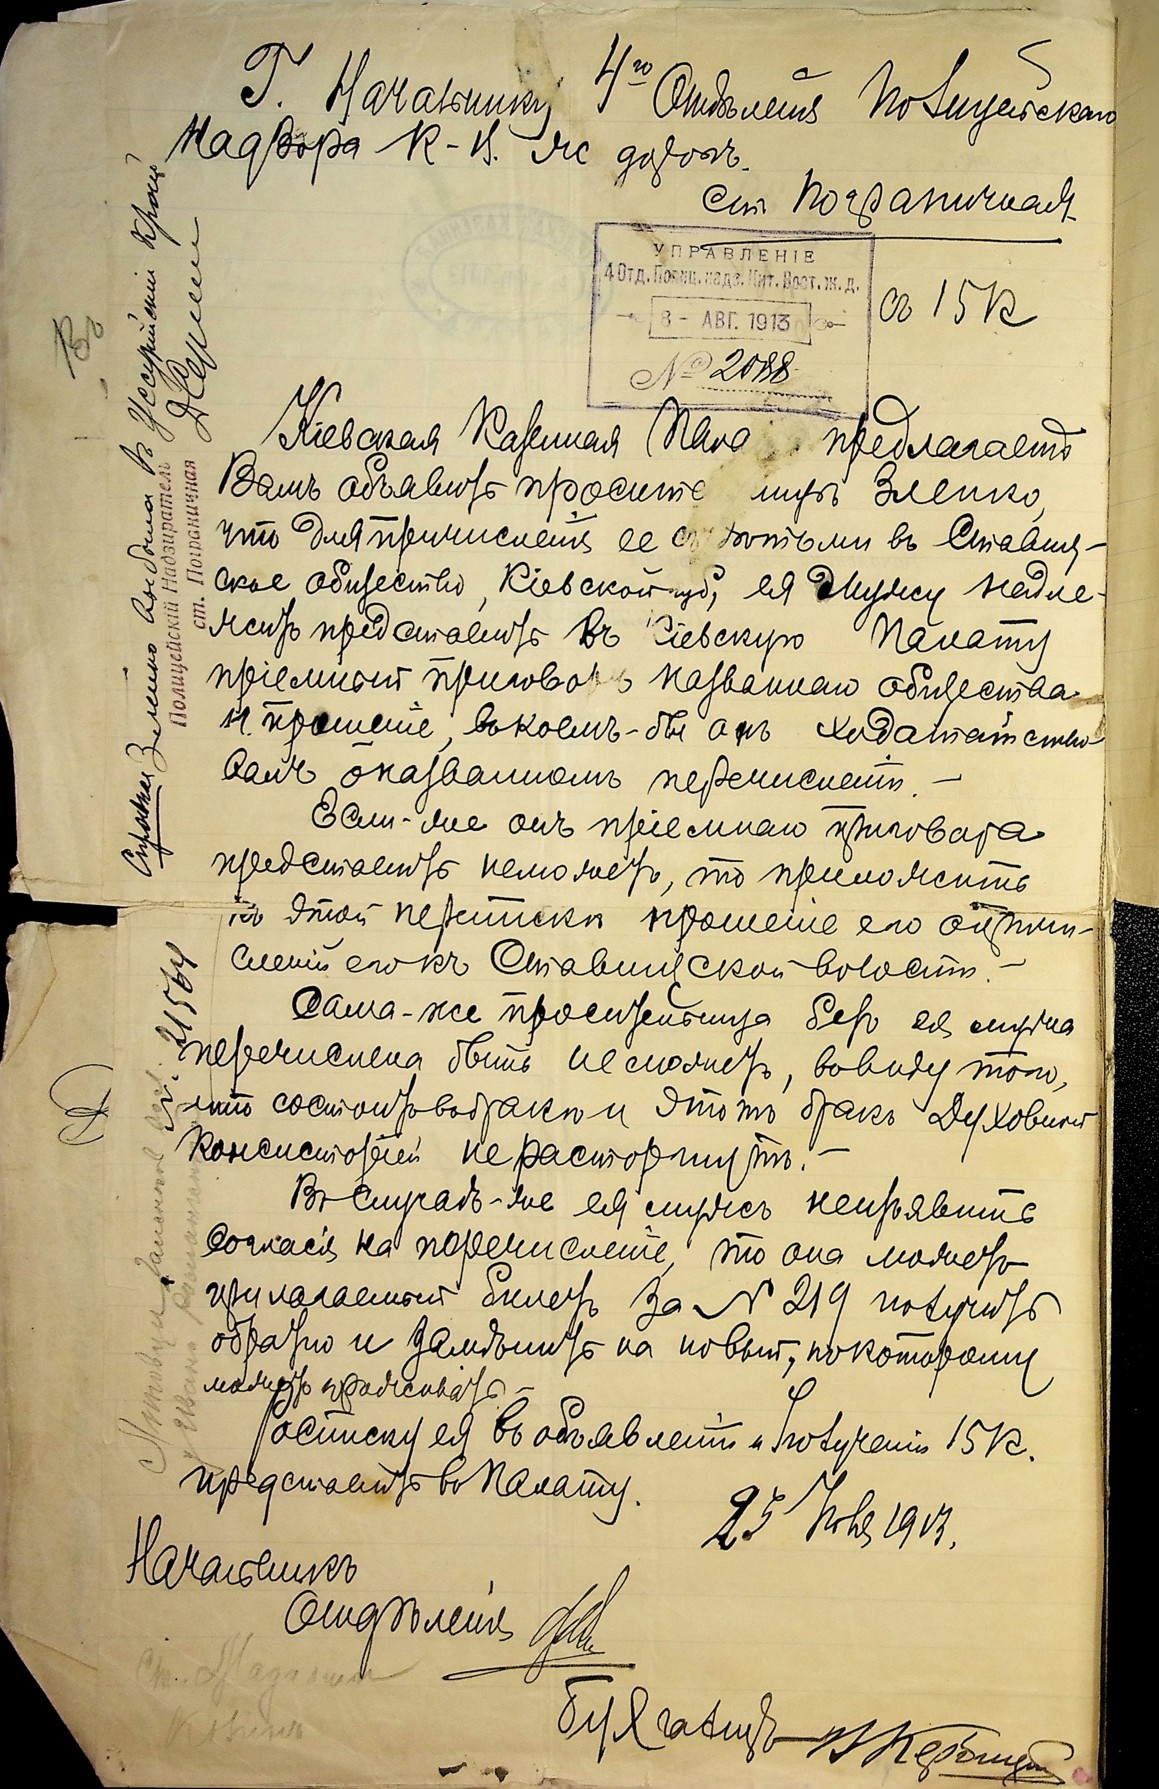 Г. Начальнику 4го Отдѣленія Полицейскаго
Надзора К-В. жс дороги.
ст Пограничная.
УПРАВЛЕНІЕ
4 Отд. Полиц. надз. Кит. Вост. ж. д.
8 - АВГ. 1913
№ 2088
съ 15 к
Кіевская Казенная Пала предлагаетъ
Вамъ объявить просите Зленко,
что для причисленія ее съ дѣтьми въ Ставищ-
ское общество, Кіевской губ, ея мужу надле-
житъ представить въ Кіевскую Палату
пріемный приговоръ названнаго общества
и прошеніе, въ коемъ-бы онъ ходатайство
валъ о названномъ перечисленіи. –
Если-же онъ пріемнаго приговора
представить неможетъ, то приложить
къ этой перепискѣ прошеніе его о причи-
сленіи его къ Ставищской волости. –
Сама-же просительница безъ ея мужа
перечислена быть не можетъ, ввиду того,
что состоитъ въ бракѣ и этотъ бракъ Духовной
Консисторіей не расторгнутъ. –
Въ случаѣ-же ея мужъ неизъявитъ
согласія на перечисленіе, то она можетъ
прилагаемый билетъ за № 219 получить
обратно и замѣнить на новый, по которому
можетъ проживать –
Росписку ея въ объявленіи и полученіи 15 к.
представить въ Палату.
25 Іюля 1913.
Начальникъ
Отдѣленія
Бухгалтеръ
Справка Зленко выбыла въ Уссурійскій край
Полицейскій Надзиратель
ст. Пограничная
№ 21564